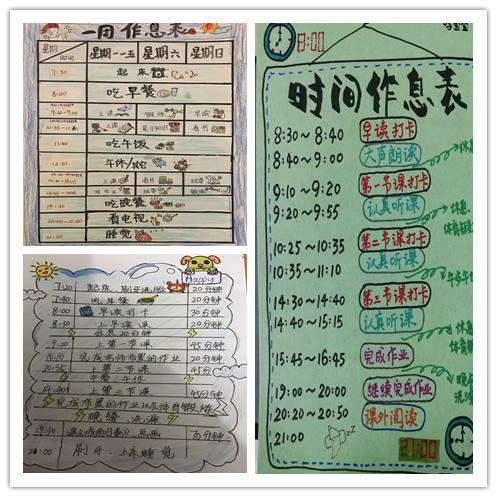 一周作息表
星期
时间
星期一~五 星期六 星期日
7:30 起床
8:00 吃早餐
上课
看书
11:40 吃午饭
12:20 午休/其它
吃晚餐
20:00 看电视
21:30 睡觉
Happy
7:20 起床、刷牙洗脸 20分钟
7:40 吃早餐 20分钟
8:00 早读打卡 30分钟
8:30 上早读课 20分钟
休息20分钟
9:20 上第一节课 45分钟
10:10 完成老师布置的作业 20分钟
10:35 上第二节课 45分钟
午餐、午休
14:40 上第三节课 45分钟
完成布置的作业以及体育锻炼
晚餐、洗澡
19:30 画画 70分钟
21:00 刷牙、上床睡觉
8:00
时间作息表
8:30~8:40 早读打卡
8:40~9:00 大声朗读
休息
9:10~9:20 第一节课打卡
9:20~9:55 认真听课
休息、
10:25~10:35 第二节课打卡
10:35~11:10 认真听课
14:30~14:40 第三节课打卡
14:40~15:15 认真听课
休息
15:45~16:45 完成作业
19:00~20:00 继续完成作业
20:20~20:50 课外阅读
21:00
21:00